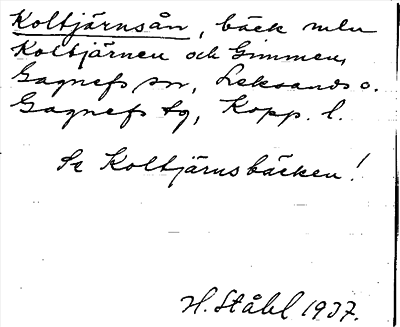 Koltjärnsån, bäck mln
Koltjärnen och Gimmen,
Gagnefs sn, Leksands o.
Gagnefs tg, Kopp. l.
Se Koltjärnsbäcken!
H. Ståhl 1937.